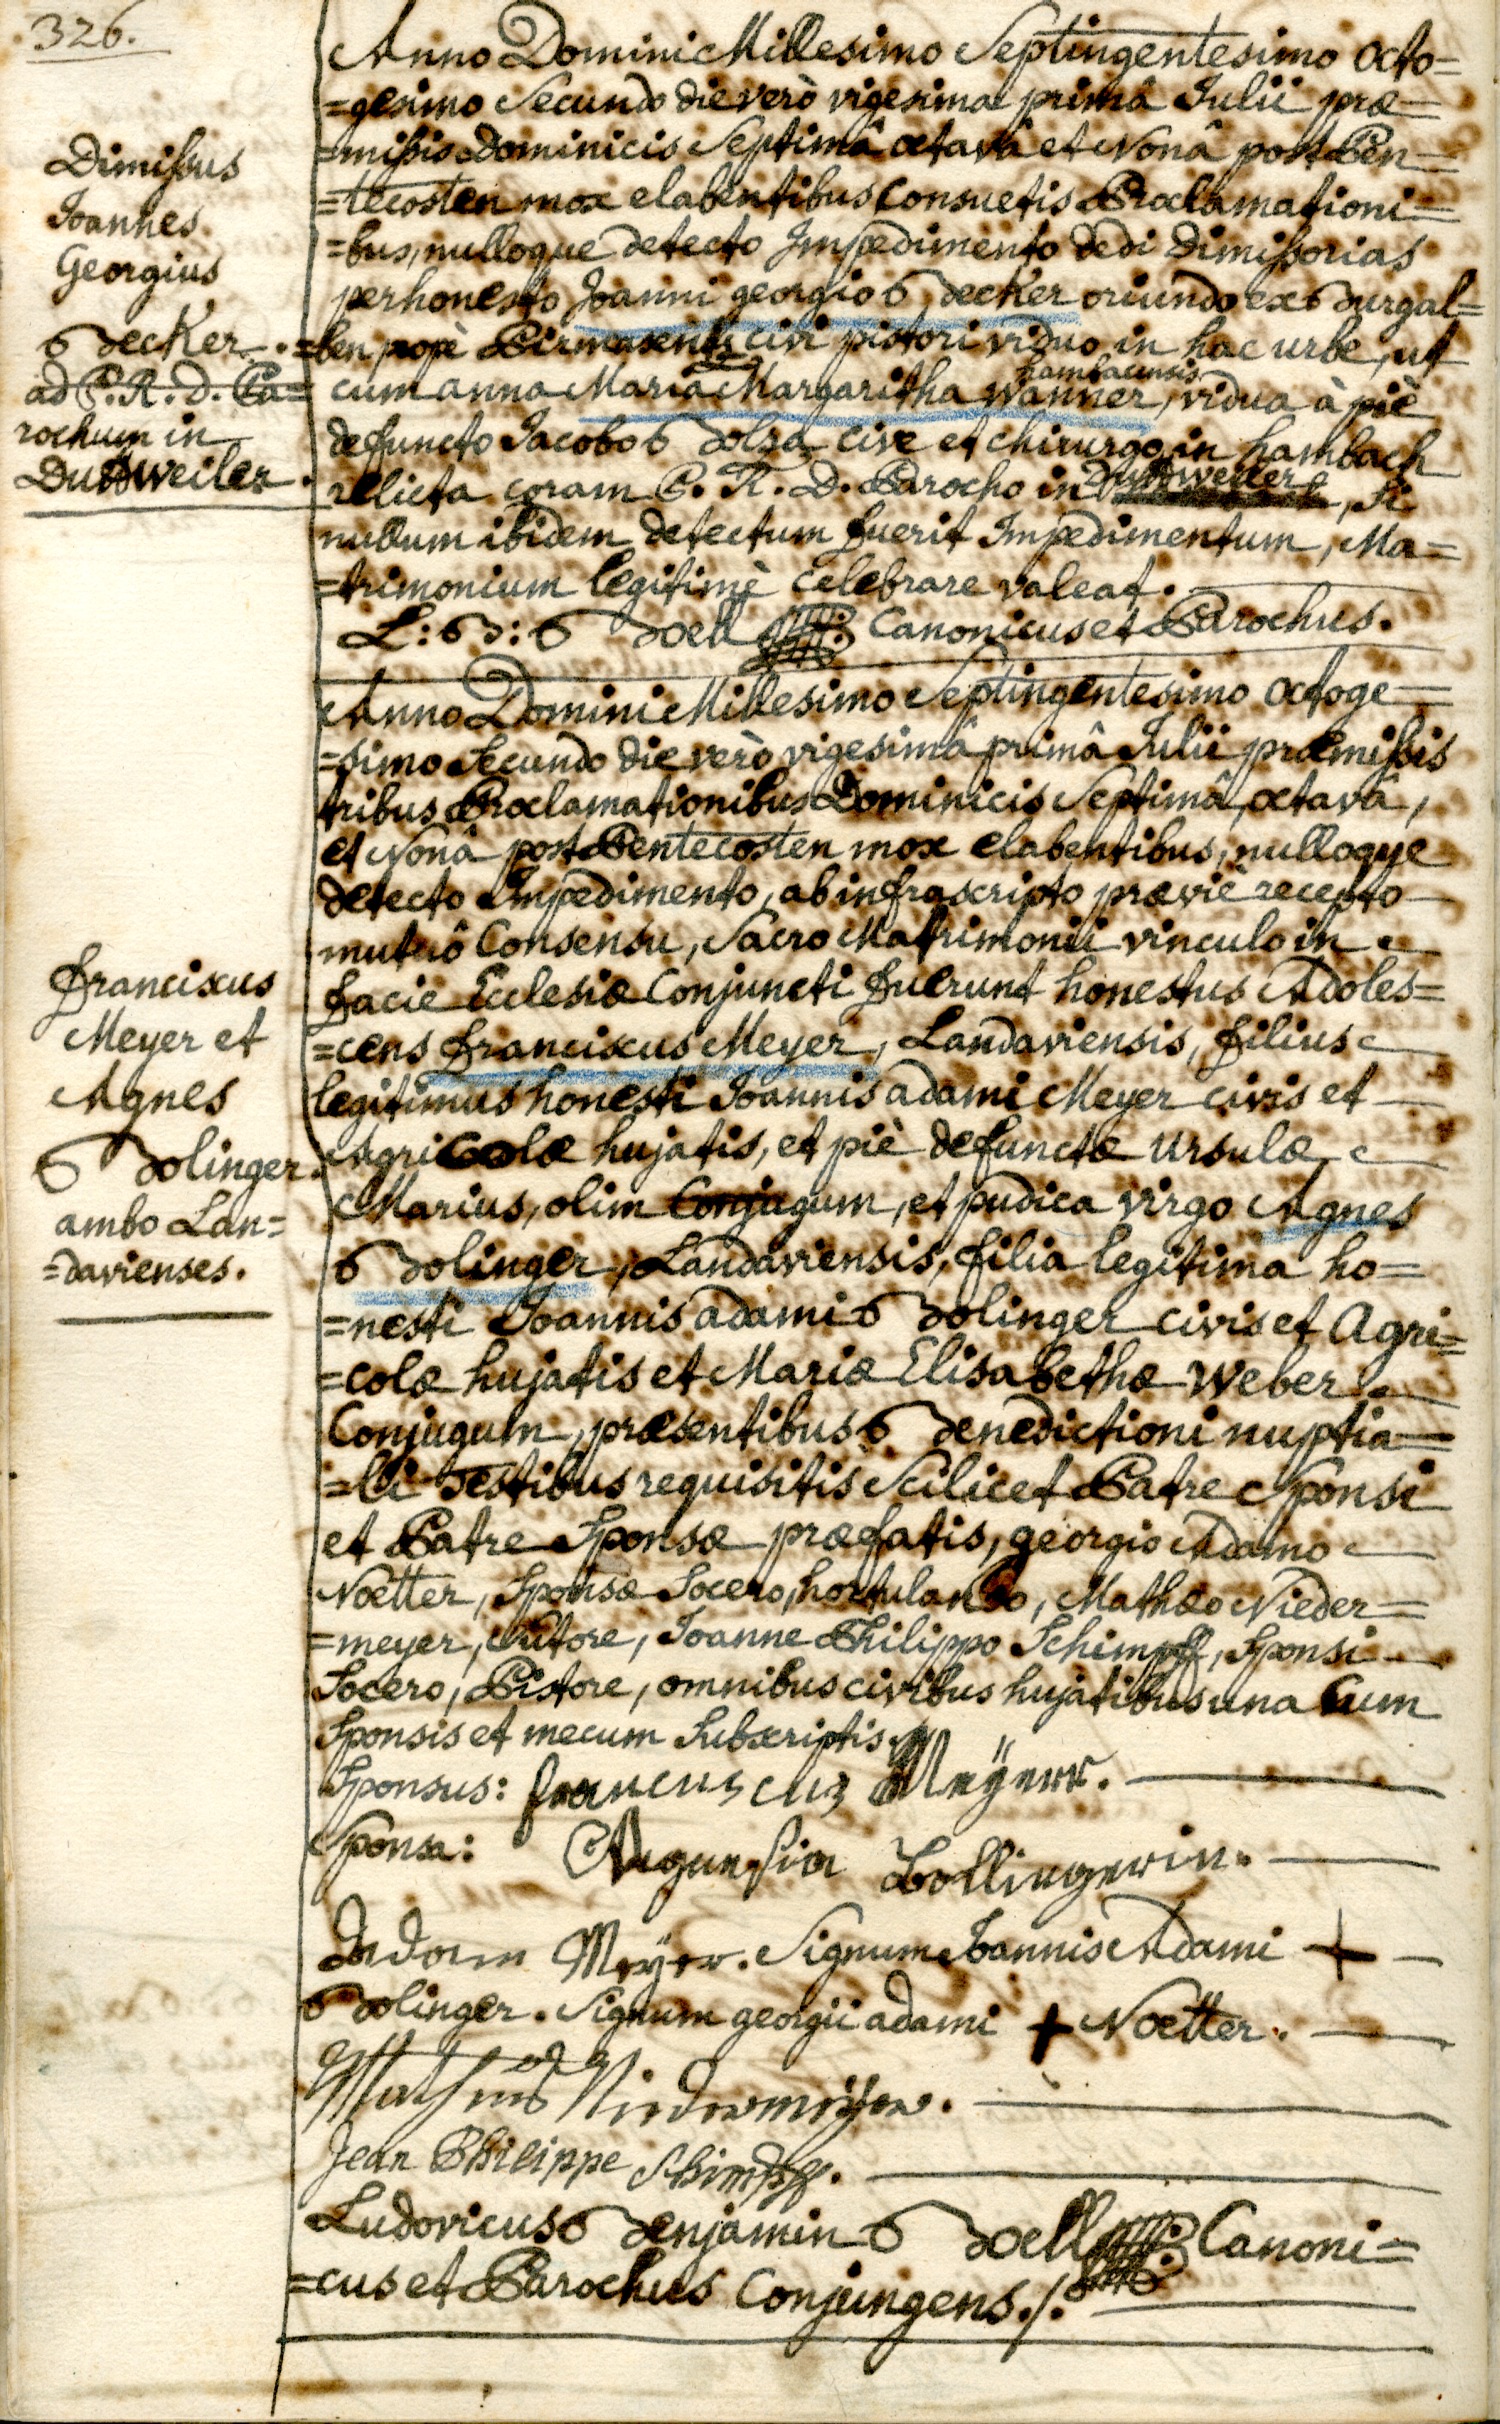 326.
Dimissus
Joannes
Georgius
Becker.
ad P. R. D. Pa=
rochum in
Duttweiler.
Anno Domini Millesimo Septingentesimo octo=
=gesimo Secundo die verò vigesima primâ Julii præ=
=missis Dominicis Septimâ octavâ et Nonâ post Pen=
=tecosten mox elabentibus Consuetis Proclamationi=
=bus, nulloque detecto Impedimento dedi Dimissorias
perhonesto Joanni georgio Becker oriundo ex Burgal=
=ben propè Pirmasens civi pistori viduo in hac urbe, ut
hambacensis
cum anna Maria Margaritha Wanner, vidua à piè
defuncto Jacobo Bolza cive et chirurgo in hambach
relicta coram P. R. D. Parocho in Duttweiler, si
nullum ibidem detectum fuerit Impedimentum, Ma=
=trimonium legitimè Celebrare valeat.
L: B: Boell Canonicus et Parochus.
Anno Domini Millesimo Septingentesimo octoge=
=simo Secundo die verò vigesimâ primâ Julii præmissis
tribus Proclamationibus Dominicis Septimâ, octavâ,
et Nonâ post Pentecosten mox elabentibus, nulloque
detecto Impedimento, ab infrascripto præviè recepto
mutuô Consensu, Sacro Matrimonii vinculo in
facie Ecclesiæ Conjuncti fuerunt honestus Adoles=
=cens franciscus Meyer, Landaviensis, filius
legitimus honesti Joannis adami Meyer civis et
Agricolæ hujatis, et piè defunctæ Ursulæ
Marius, olim Conjugum, et pudica virgo Agnes
Bolinger, Landaviensis, filia legitima ho=
=nesti Joannis adami Bolinger civis et Agri=
=colæ hujatis et Mariæ Elisabethæ Weber
Conjugum, præsentibus Benedictioni nuptia=
=li Testibus requisitis Scilicet Patre Sponsi
et Patre Sponsæ præfatis, georgio Adamo
Noetter, Sponsæ Socero, hortulano, Mathæo Nieder=
=meyer, Sutore, Joanne Philippo Schimpff, Sponsi
Socero, Pistore, omnibus civibus hujatibus una Cum
Sponsis et mecum Subscriptis.
franciscus
Meyer et
Agnes
Bolinger.
ambo Lan=
=davienses.
Sponsus: francuscus Meÿerr.
Sponsa: Angnesia Bollingerin.
Adam Meÿer. Signum Joannis Adami +
Bolinger. Signum georgii adami + Noetter.
Mathæus Niedermeÿer.
Jean Philippe Schimpff.
Ludovicus Benjamin Boell Canoni=
=cus et Parochus Conjungens./.